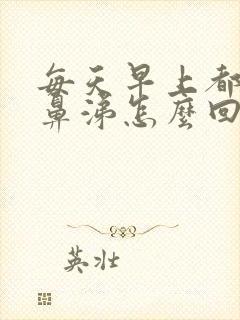 每天早上都
鼻涕怎麼回
英壯